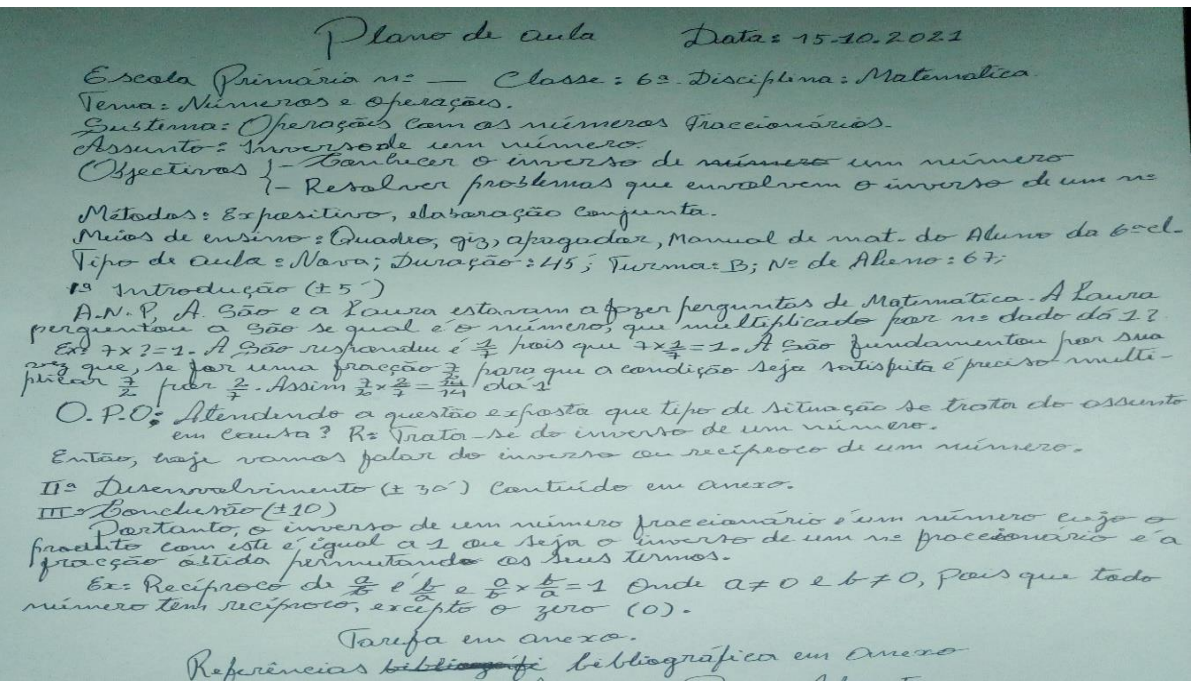 Plano de aula Data: 15.10.2021
Escola Primária nº — Classe: 6ª Disciplina: Matematica.
Tema: Números e operações.
Subtema: Operações com os números fraccionários.
Assunto: Inverso de um número.
Objectivos { - Conhecer o inverso de número um número
- Resolver problemas que envolvem o inverso de um nº
Métodos: Expositivo, elaboração conjunta.
Meios de ensino: Quadro, giz, apagador, Manual de mat. do Aluno da 6ª cl.
Tipo de aula: Nova; Duração: 45´; Turma: B; Nº de Aluno: 67;
1º Introdução (±5´)
A.N.P, A São e a Laura estavam a fazer perguntas de Matemática. A Laura
perguntou a São se qual é o número, que multiplicado por nº dado dá 1?
Ex: 7x?=1. A São respondeu é 1/7 pois que 7x1/7=1. A São fundamentou por sua
vez que, se for uma fracção 7/2 para que a condição seja satisfeita é preciso multi-
plicar 7/2 por 2/7. Assim 7/2x2/7=14/14 dá 1
O.P.O: Atendendo a questão exposta que tipo de situação se trata do assunto
em causa? R: Trata-se do inverso de um número.
Então, hoje vamos falar do inverso ou recíproco de um número.
IIº Desenvolvimento (±30´) Conteúdo em anexo.
III- Conclusão (±10)
Portanto, o inverso de um número fraccionário é um número cujo o
produto com este é igual a 1 ou seja o inverso de um nº fraccionário é a
fracção obtida permutando os seus termos.
Ex: Recíproco de a/b é b/a e a/b x b/a=1 Onde a≠0 e b≠0, pois que todo
número tem recíproco, excepto o zero (0).
Tarefa em anexo.
Referências bibliográfica em anexo